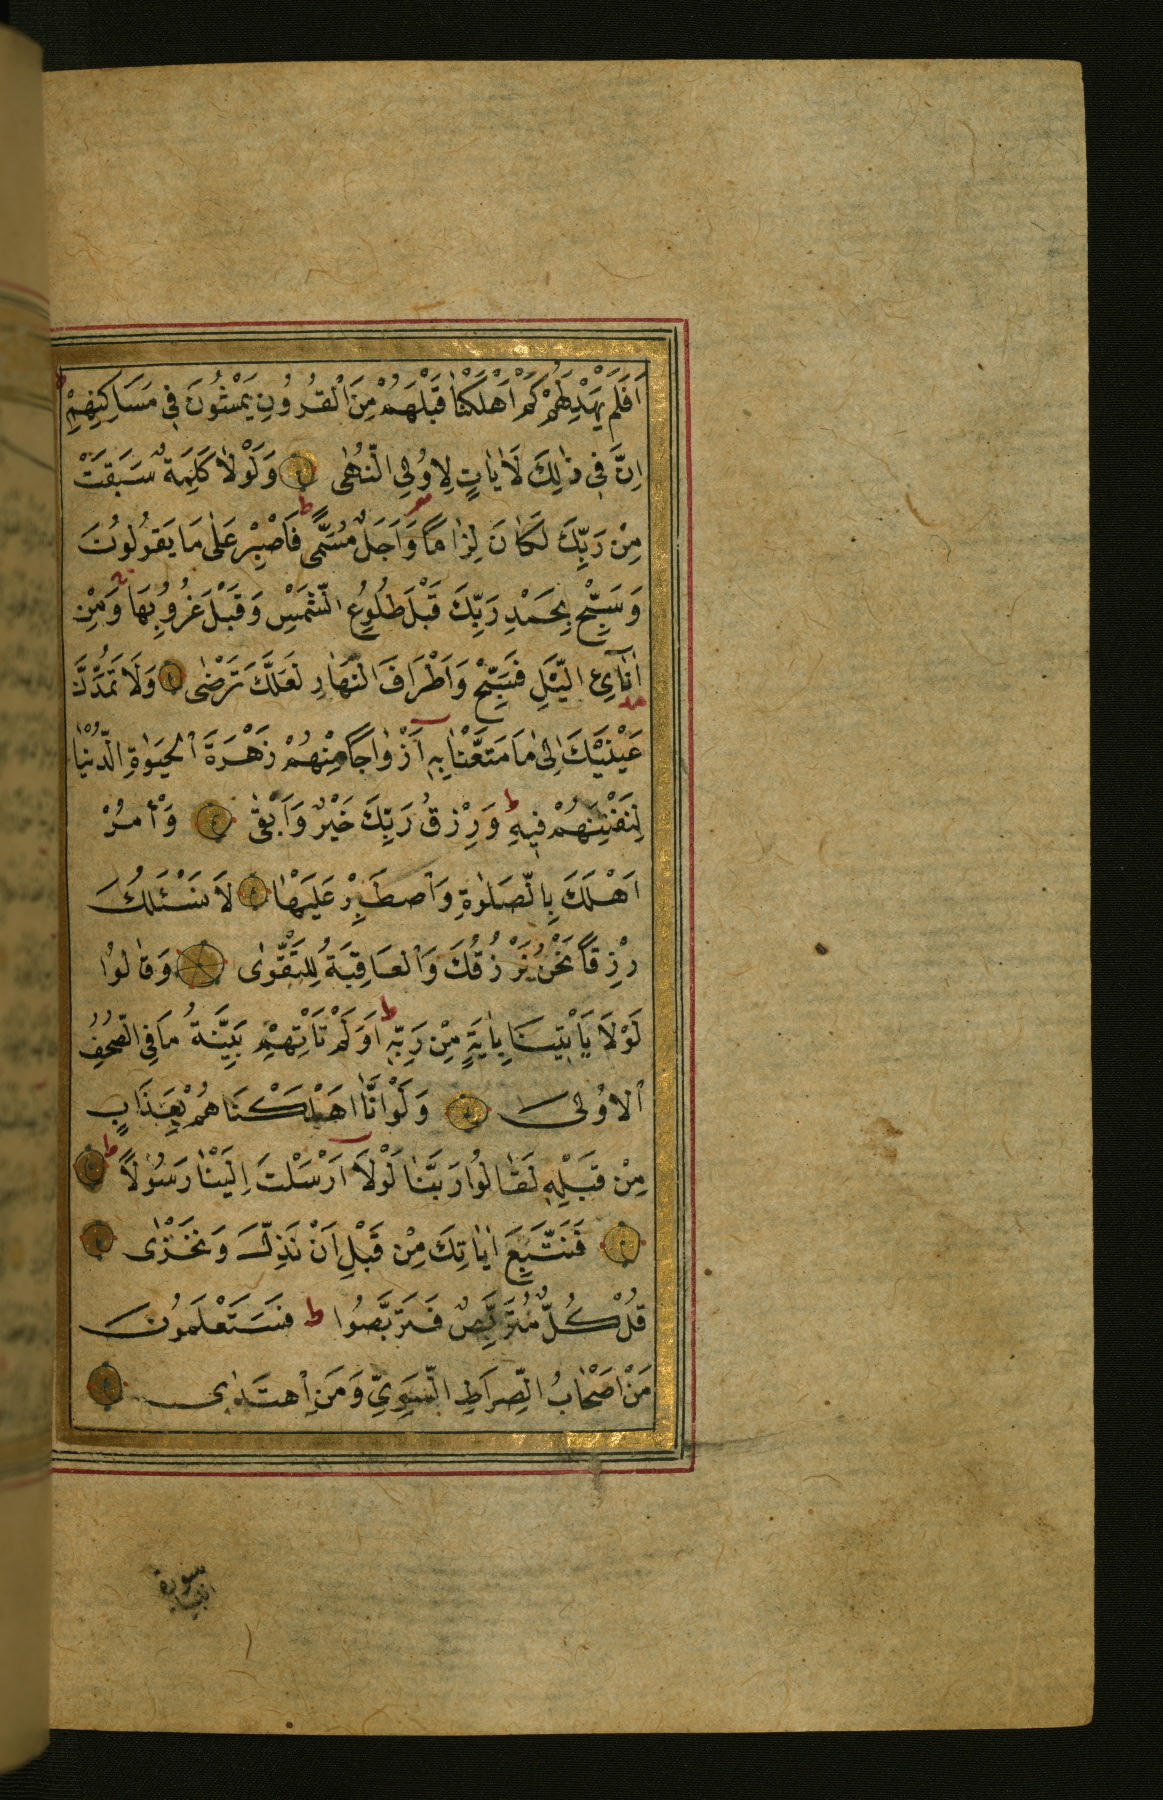 اَفَلَمْ يَهْدِ لَهُمْ كَمْ اَهْلَكْنَا قَبْلَهُمْ مِنَ الْقُرُونِ يَمْشُونَ فِي مَسَاكِنِهِمْ ط
اِنَّ فِي ذٰلِكَ لَاٰيَاتٍ لِاُولِي النُّهٰى وَلَوْلَا كَلِمَةٌ سَبَقَتْ
مِنْ رَبِّكَ لَكَانَ لِزَامًا وَاَجَلٌ مُسَمًّى ط فَاصْبِرْ عَلٰى مَا يَقُولُونَ
وَسَبِّحْ بِحَمْدِ رَبِّكَ قَبْلَ طُلُوعِ الشَّمْسِ وَقَبْلَ غُرُوبِهَا وَمِنْ
اٰنَآئِ الَّيْلِ فَسَبِّحْ وَاَطْرَافَ النَّهَارِ لَعَلَّكَ تَرْضٰى وَلَا تَمُدَّنَّ
عَيْنَيْكَ اِلٰى مَا مَتَّعْنَا بِهٖ اَزْوَاجًا مِنْهُمْ زَهْرَةَ الْحَيٰوةِ الدُّنْيَا
لِنَفْتِنَهُمْ فِيهِ ط وَرِزْقُ رَبِّكَ خَيْرٌ وَاَبْقٰى وَأْمُرْ
اَهْلَكَ بِالصَّلٰوةِ وَاصْطَبِرْ عَلَيْهَا لَا نَسْئَلُكَ
رِزْقًا نَحْنُ نَرْزُقُكَ وَالْعَاقِبَةُ لِلتَّقْوٰى وَقَالُوا
لَوْلَا يَأْتِينَا بِاٰيَةٍ مِنْ رَبِّهٖ ط اَوَلَمْ تَأْتِهِمْ بَيِّنَةُ مَا فِي الصُّحُفِ
الْاُولٰى وَلَوْ اَنَّا اَهْلَكْنَاهُمْ بِعَذَابٍ
مِنْ قَبْلِهٖ لَقَالُوا رَبَّنَا لَوْلَا اَرْسَلْتَ اِلَيْنَا رَسُولًا ط
فَنَتَّبِعَ اٰيَاتِكَ مِنْ قَبْلِ اَنْ نَذِلَّ وَنَخْزٰى
قُلْ كُلٌّ مُتَرَبِّصٌ فَتَرَبَّصُوا ط فَسَتَعْلَمُونَ
مَنْ اَصْحَابُ الصِّرَاطِ السَّوِيِّ وَمَنِ اهْتَدٰى
سورة
انبيا